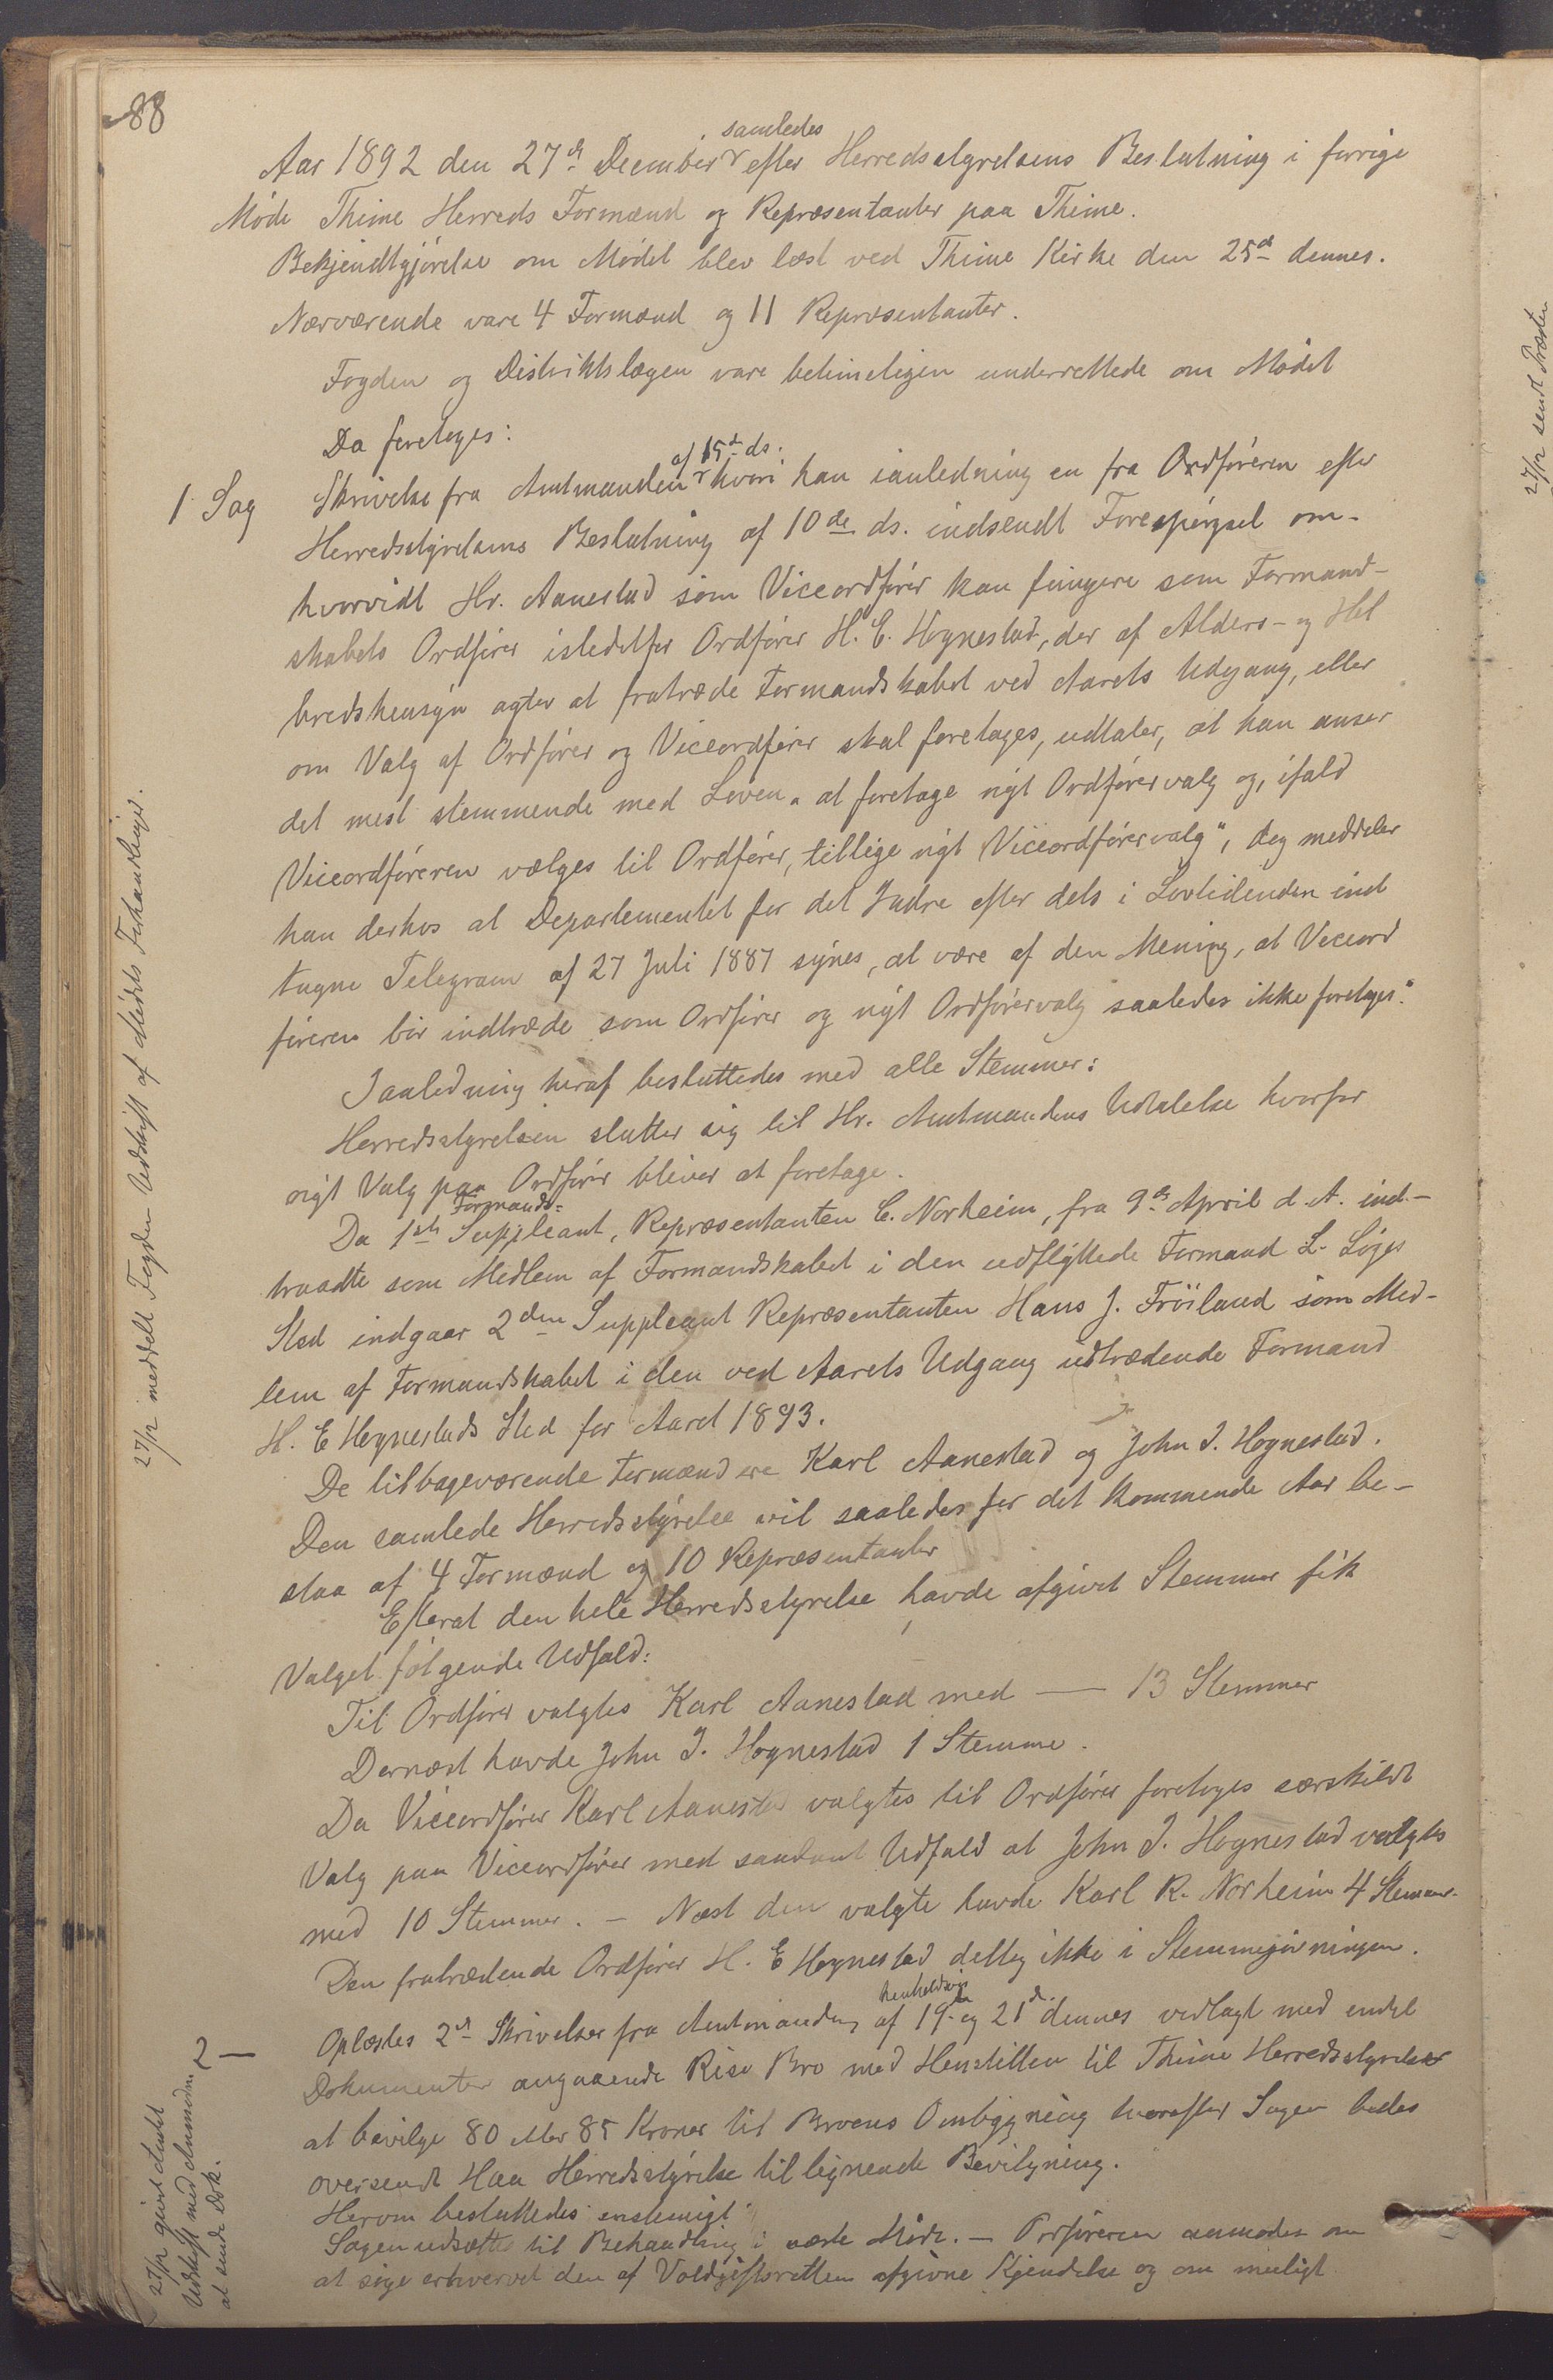 88
samledes
Aar 1892 den 27de December efter Herredsstyrelsens Beslutning i forrige
Møde Thime Herreds Formænd og Repræsentanter paa Thime.
Bekjendtgjørelse om Mødet blev læst ved Thime Kirke den 25de dennes.
Nærværende vare 4 Formænd og 11 Repræsentanter.
Fogden og Distriktslægen vare betimeligen underrettede om Mødet
Da foretoges:
af 15de ds.
1 Sag Skrivelse fra Amtmanden hvori han ianledning en fra Ordføreren efter
Herredsstyrelsens Beslutning af 10de ds. indsendt Forespørgsel om-
hvorvidt Hr. Aanestad som Viceordfører kan fungere som Formand-
skabets Ordfører istedetfor Ordfører H. E. Høgnestad, der af Alders- og Hel
bredshensyn agter at fratræde Formandskabet ved Aarets Udgang, eller
om Valg af Ordfører og Viceordfører skal foretages, udtaler, at han anser
det mest stemmende med Loven "at foretage nyt Ordførervalg og, ifald
Viceordføreren vælges til Ordfører, tillige nyt Viceordførervalg", dog meddeler
han derhos at Departementet for det Indre efter dets i Lovtidenden ind
tagne Telegram af 27 Juli 1887 synes, at være af den Mening, at Viceord
føreren bør indtræde som Ordfører og nyt Ordførervalg saaledes ikke foretages".
Ianledning heraf besluttedes med alle Stemmer:
Herredsstyrelsen slutter sig til Hr. Amtmandens Udtalelse hvorfor
nyt Valg paa Ordfører bliver at foretage.
Formands=
Da 1ste Suppleant, Repræsentanten E. Norheim, fra 9de April d. A. ind-
traadte som Medlem af Formandskabet i den udflyttede Formand L. Løges
Sted indgaar 2den Suppleant Repræsentanten Hans J. Frøiland som Med-
lem af Formandskabet i den ved Aarets Udgang udtrædende Formand
H. E Høgnestads Sted for Aaret 1893.
De tilbageværende Formænd ere Karl Aanestad og John I. Høgnestad.
Den samlede Herredsstyrelse vil saaledes for det kommende Aar be-
staa af 4 Formænd og 10 Repræsentanter
Efterat den hele Herredsstyrelse havde afgivet Stemmer fik
Valget følgende Udfald:
Til Ordfører valgtes Karl Aanestad med — 13 Stemmer
Dernæst havde John I. Høgnestad 1 Stemme.
Da Viceordfører Karl Aanestad valgtes til Ordfører foretoges særskildt
Valg paa Viceordfører med saadant Udfald at John I. Høgnestad valgtes
med 10 Stemmer. — Næst den valgte havde Karl R. Norheim 4 Stemmer.
Den fratrædende Ordfører H. E Høgnestad deltog ikke i Stemmegivningen.
henholdsvis
2 — Oplæstes 2de Skrivelser fra Amtmanden af 19de og 21de dennes vedlagt med endel
Dokumenter angaaende Rise Bro med Henstillen til Thime Herredsstyrelse
at bevilge 80 eller 85 Kroner til Broens Ombygning hvorefter Sagen bedes
oversendt Haa Herredsstyrelse til lignende Bevilgning.
Herom besluttedes enstemigt:
Sagen udsættes til Behandling i næste Møde. — Ordføreren anmodes om
at søge erhvervet den af Voldgiftsretten afgivne Kjendelse og om muligt
27/12 meddelt Fogden Udskrift af Mødets Forhandlinger.
27/12 givet Amtet
Udskrift med Anmodn.
at sende Dok.
27/12 sendt Præsten